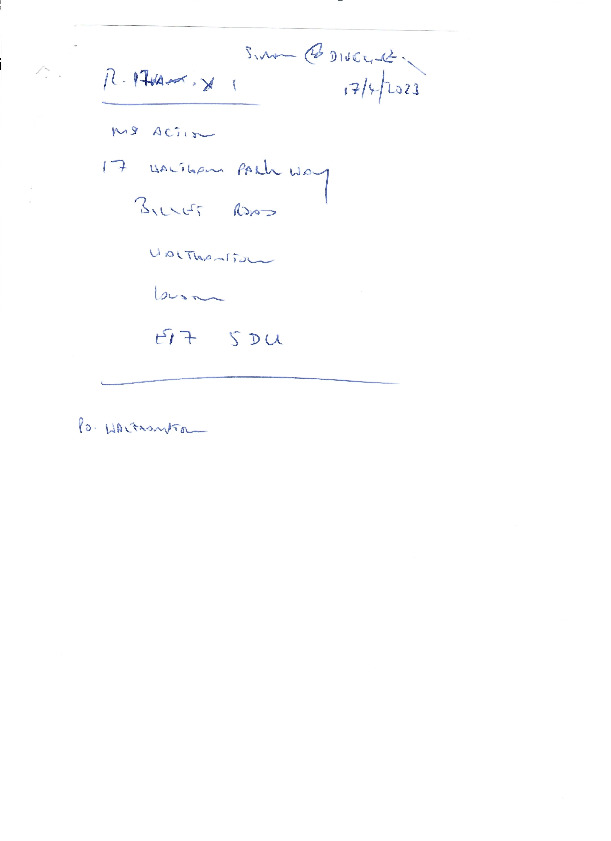 17/4/2023
MS ACTION
17 WALTHAM PARK WAY
BILLET ROAD
WALTHAMSTOW
London
E17 5DU
PO. WALTHAMSTOW